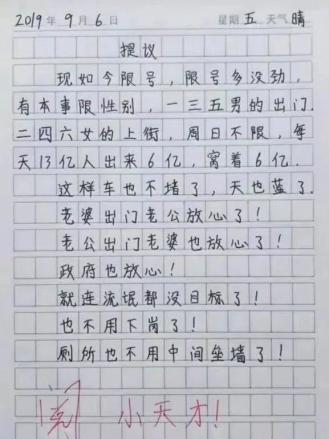 2019年9月6日 星期五 天气晴
提议
现如今限号，限号多没劲，
有本事限性别，一三五男的出门.
二四六女的上街，周日不限，每
天13亿人出来6亿，窝着6亿.
这样车也不堵了，天也蓝了.
老婆出门老公放心了！
老公出门老婆也放心了！
政府也放心！
就连流氓都没目标了！
也不用下岗了！
厕所也不用中间垒墙了！
阅 小天才！